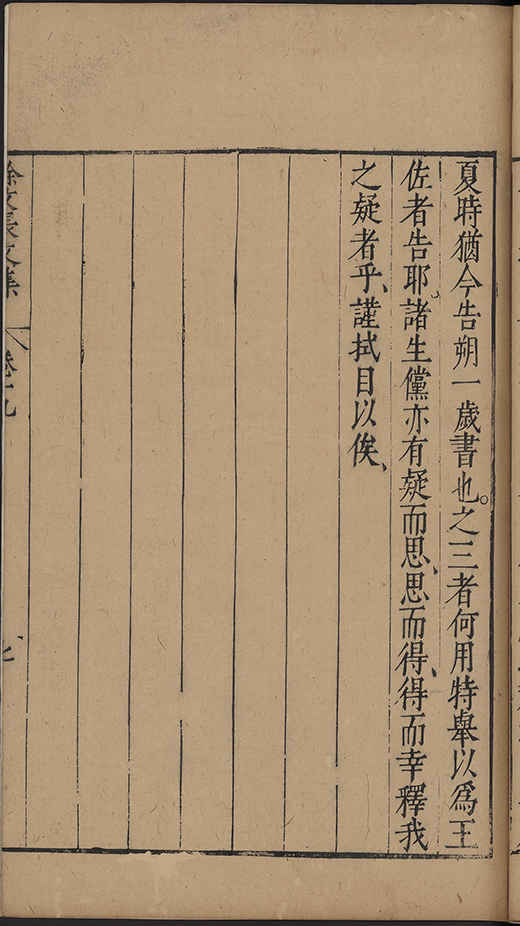 夏時猶今告朔一歲書也。之三者何用特舉以為王
佐者告耶。諸生儻亦有疑而思、思而得、得而幸釋我
之疑者乎、謹拭目以俟、
徐文長文集 卷十九 七